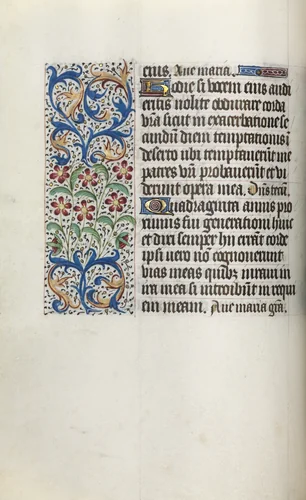 eius. Aue maria.
Hodie si vocem eius audi
eritis nolite obdurare corda
vestra sicut in exacerbatione se
cundum diem temptationis in
deserto ubi temptauerunt me
patres vestri probauerunt et vi
derunt opera mea. Dns tecum.
Quadraginta annis pro
ximus fui generationi huic
et dixi semper hii errant corde
ipsi uero non cognouerunt
vias meas quibus iuraui in
ira mea si introibunt in requi
em meam. Aue maria gra.